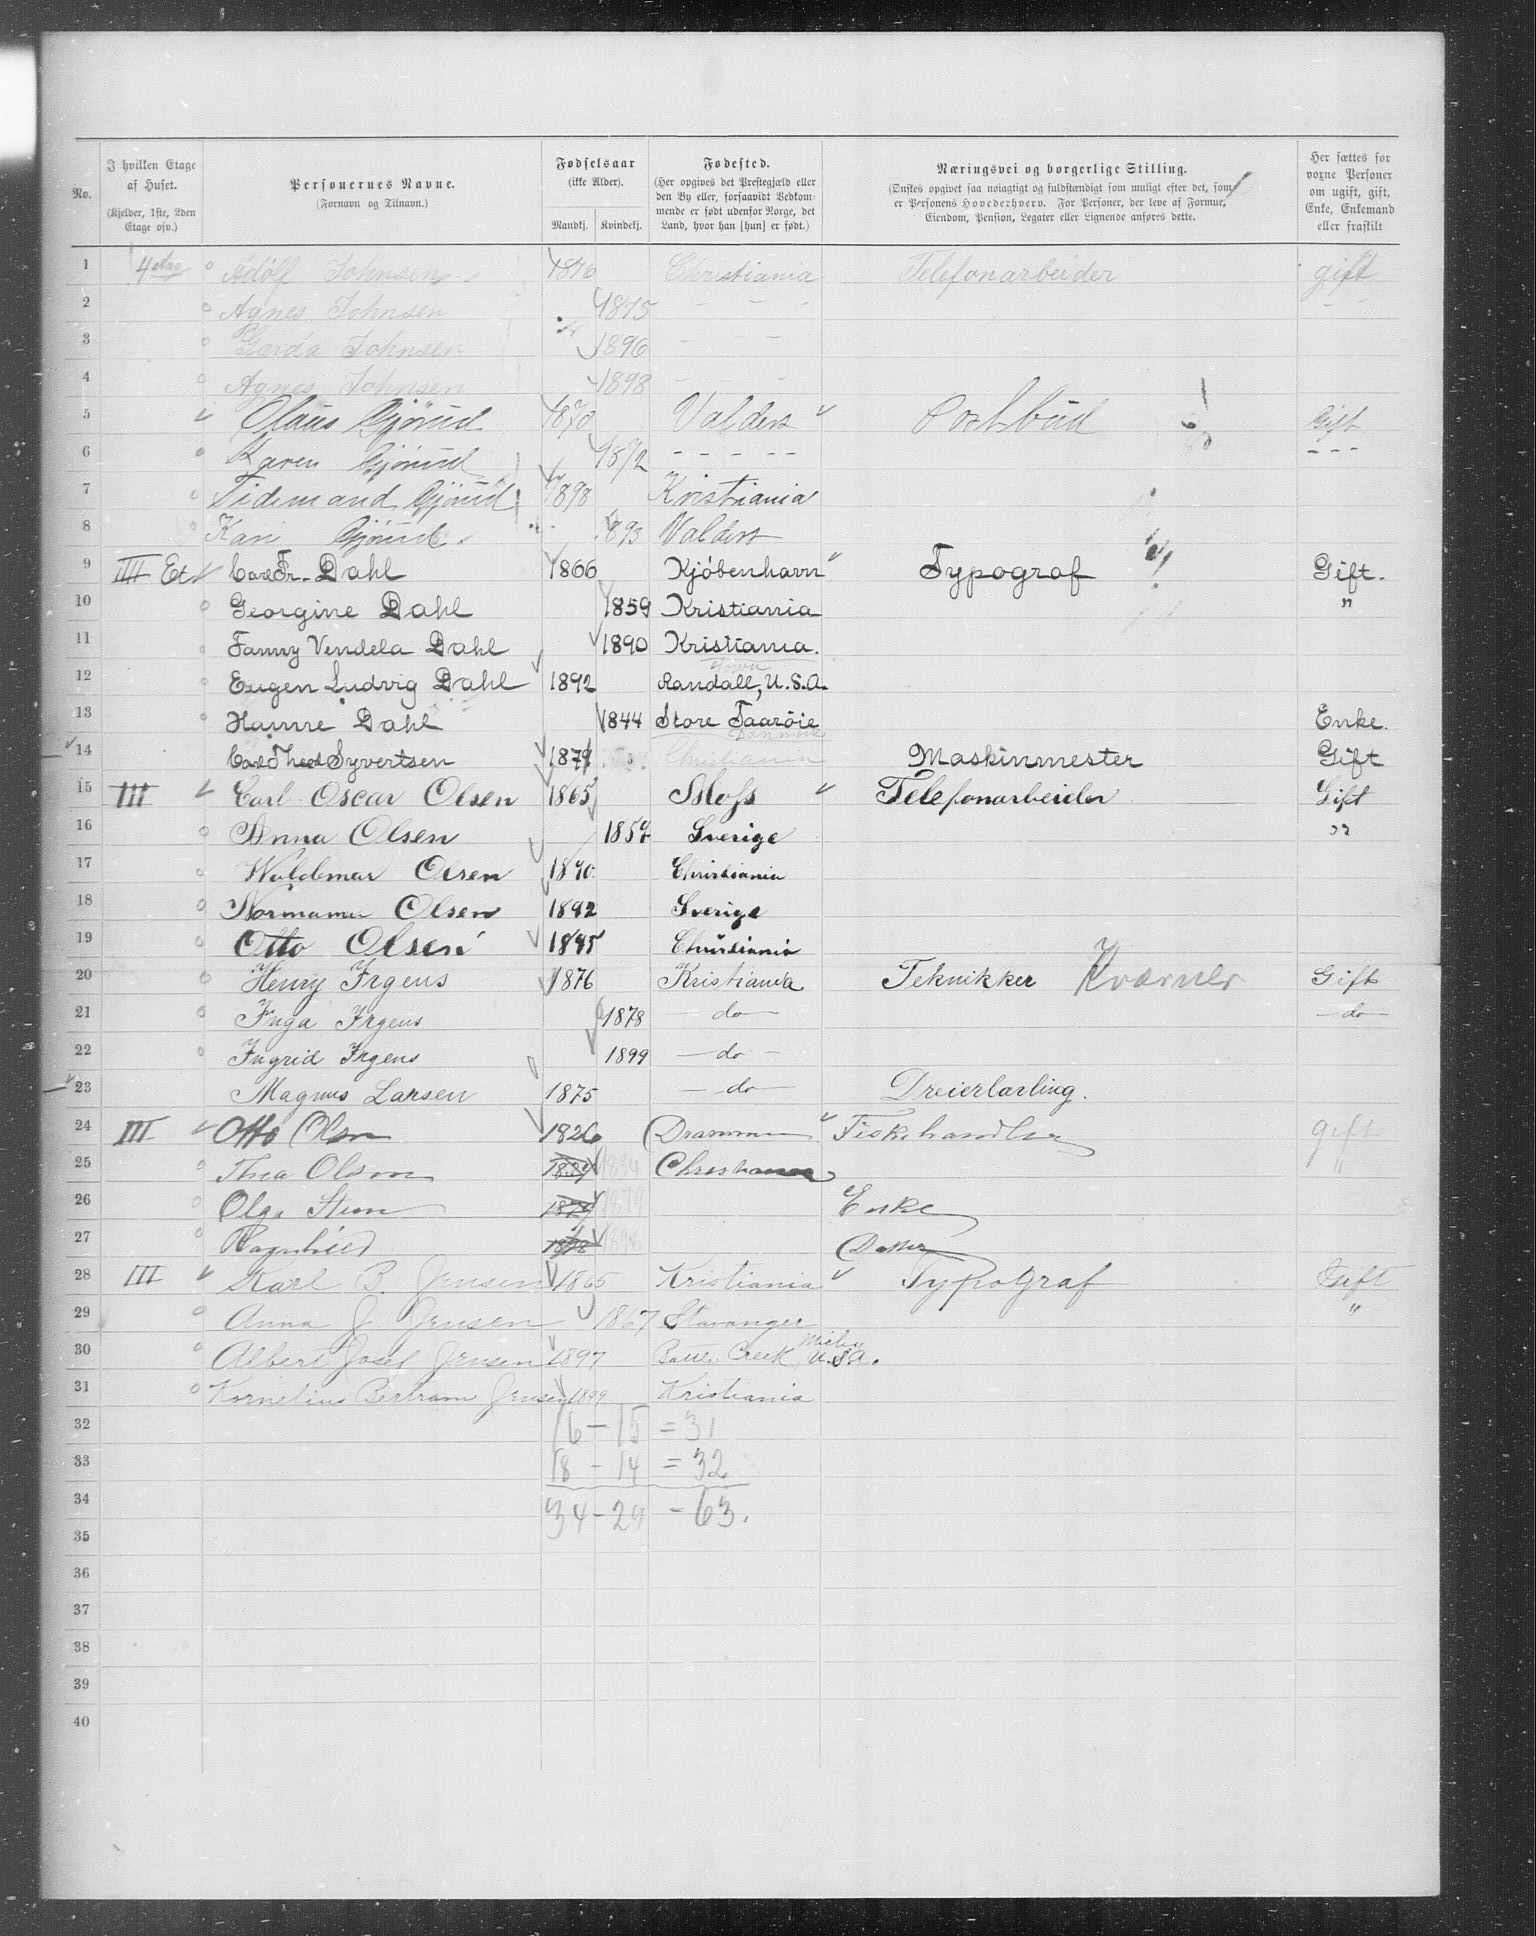 No.
I hvilken Etage af Huset. (Kjelder, 1ste, 2den Etage osv.)
Personernes Navne. (Fornavn og Tilnavn.)
Fødselsaar (ikke Alder). Mandkj. Kvindekj.
Fødested. (Her opgives det Prestegjæld eller den By eller, forsaavidt Vedkommende er født udenfor Norge, det Land, hvor han [hun] er født.)
Næringsvei og borgerlige Stilling. (Ønskes opgivet saa nøiagtigt og fuldstændigt som muligt efter det, som er Personens Hovederhverv. For Personer, der leve af Formue, Eiendom, Pension, Legater eller Lignende anføres dette.
Her sættes for vorne Personer om ugift, gift, Enke, Enkemand eller fraskilt
1 4 etag Adolf Johnsen 1876 Christiania Telefonarbeider gift
2 Agnes Johnsen 1875 – – – – –
3 Gærda Johnsen 1896 – – –
4 Agnes Johnsen 1898 – – –
5 Olaus Gjörud 1870 Valders Postbud Gift
6 Karen Gjörud 1872 – – – – – – – –
7 Tidemand Gjörud 1898 Kristiania
8 Kari Gjörud 1893 Valders
9 IIII Et Carl Fr. Dahl 1866 Kjöbenhavn Typograf Gift.
10 Georgine Dahl 1859 Kristiania "
11 Fanny Vendela Dahl 1890 Kristiania.
12 Eugen Ludvig Dahl 1892 Randall, Town U.S.A.
13 Hanne Dahl 1844 Store Taaröie Danmark Enke.
14 Carl Theod Syvertsen 1871 Christiania Maskinmester Gift
15 III Carl Oscar Olsen 1865 Moss Telefonarbeider Gift
16 Anna Olsen 1857 Sverige "
17 Waldemar Olsen 1890 Christiania
18 Normann Olsen 1892 Sverige
19 Otto Olsen 1895 Christiania
20 Henry Irgens 1876 Kristiania Teknikker Kværner Gift
21 Inga Irgens 1878 – do – – do –
22 Ingrid Irgens 1899 – do –
23 Magnus Larsen 1875 – do – Dreierlærling.
24 III Otto Olsen 1826 Drammen Fiskehandler gift
25 Thea Olsen 1834 1834 Christiania "
26 Olga Steen 1879 1879 Enke
27 Ragnhild 1898 1898 Datter
28 III Karl B. Jensen 1865 Kristiania Typograf Gift
29 Anna J. Jensen 1867 Stavanger "
30 Albert Josef Jensen 1897 Battle Creek, Mich. U.S.A.
31 Kornelius Bertram Jensen 1899 Kristiania
32 16 – 15 = 31
33 18 – 14 = 32
34 34 – 29 – 63.
35
36
37
38
39
40